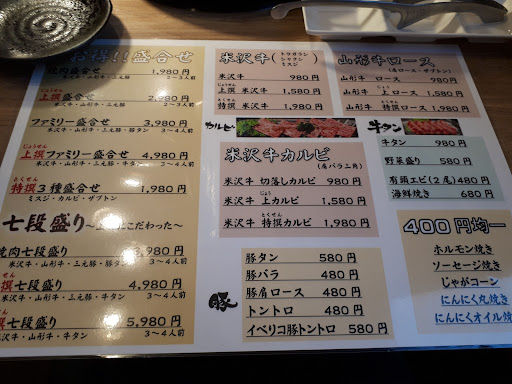 お得!!盛合せ
焼肉盛合せ 1,980円
米沢牛・山形牛・三元豚 3～4人前
じょうせん
上撰盛合せ 2,980円
米沢牛・山形牛・三元豚 2～3人前
ファミリー盛合せ 3,980円
米沢牛・山形牛・三元豚・豚タン 3～4人前
じょうせん
上撰ファミリー盛合せ 4,980円
米沢牛・山形牛・三元豚・牛タン 3～4人前
とくせん
特撰3種盛合せ 1,980円
ミスジ・カルビ・ザブトン
七段盛り～にこだわった～
焼肉七段盛り 円
米沢牛・山形牛・三元豚・豚タン 3～4人前
撰七段盛り 4,980円
米沢牛・山形牛・三元豚・牛タン 3～4人前
撰七段盛り 5,980円
米沢牛・山形牛・牛タン 3～4人前
米沢牛(トモガラン シャクシ ミスジ)
米沢牛 980円
じょうせん
上撰 米沢牛 1,580円
とくせん
特撰 米沢牛 1,980円
カルビ
米沢牛カルビ
(肩バラ三角)
米沢牛 切落しカルビ 980円
じょう
米沢牛 上カルビ 1,580円
とくせん
米沢牛 特撰カルビ 1,980円
豚
豚タン 580円
豚バラ 480円
豚肩ロース 480円
トントロ 480円
イベリコ豚トントロ 580円
山形牛ロース
(肩ロース・ザブトン)
山形牛 ロース 980円
じょう
山形牛 上ロース 1,580円
とくせん
山形牛 特撰ロース 1,980円
牛タン
牛タン 980円
野菜盛り 580円
有頭エビ(2尾) 480円
海鮮焼き 680円
400円均一
ホルモン焼き
ソーセージ焼き
じゃがコーン
にんにく丸焼き
にんにくオイル焼